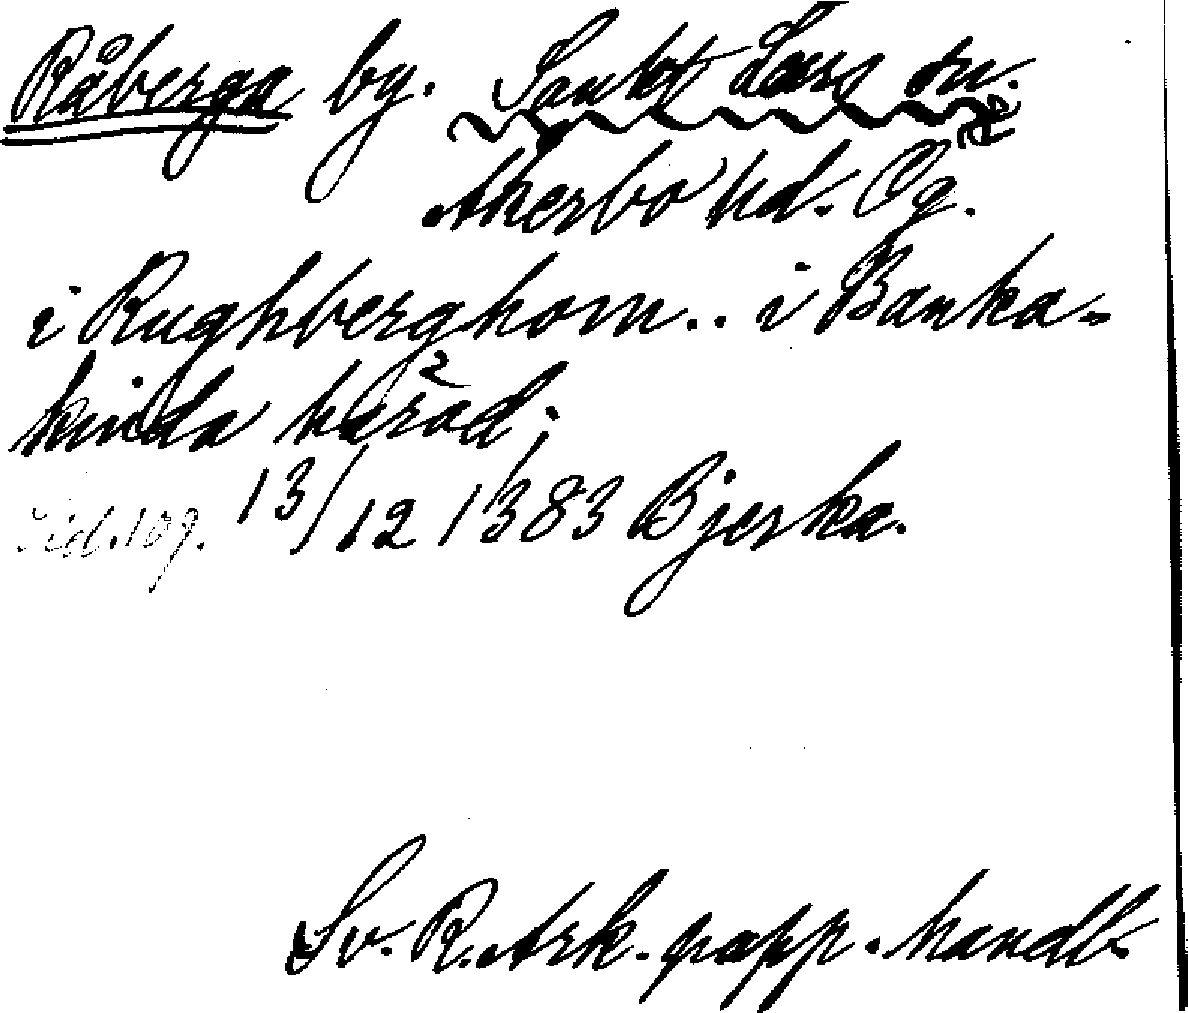 Råberga by. Sankt Lars sn.
Åkerbo hd. Ög.
i Rughberghom.. i Banka-
kinda hærad;
Sid. 109. 13/12 1383 Bjerka.
Sv. R. Ark. papp. handl.